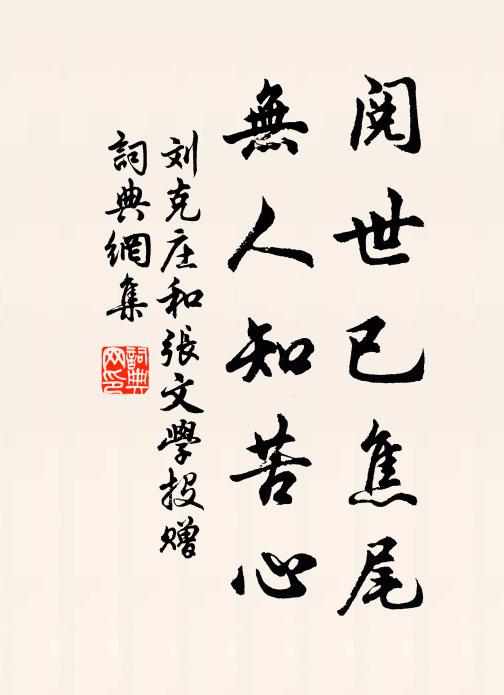 閱世已焦尾
無人知苦心
刘克庄和張文學投贈
詞典網集
詞典
网印